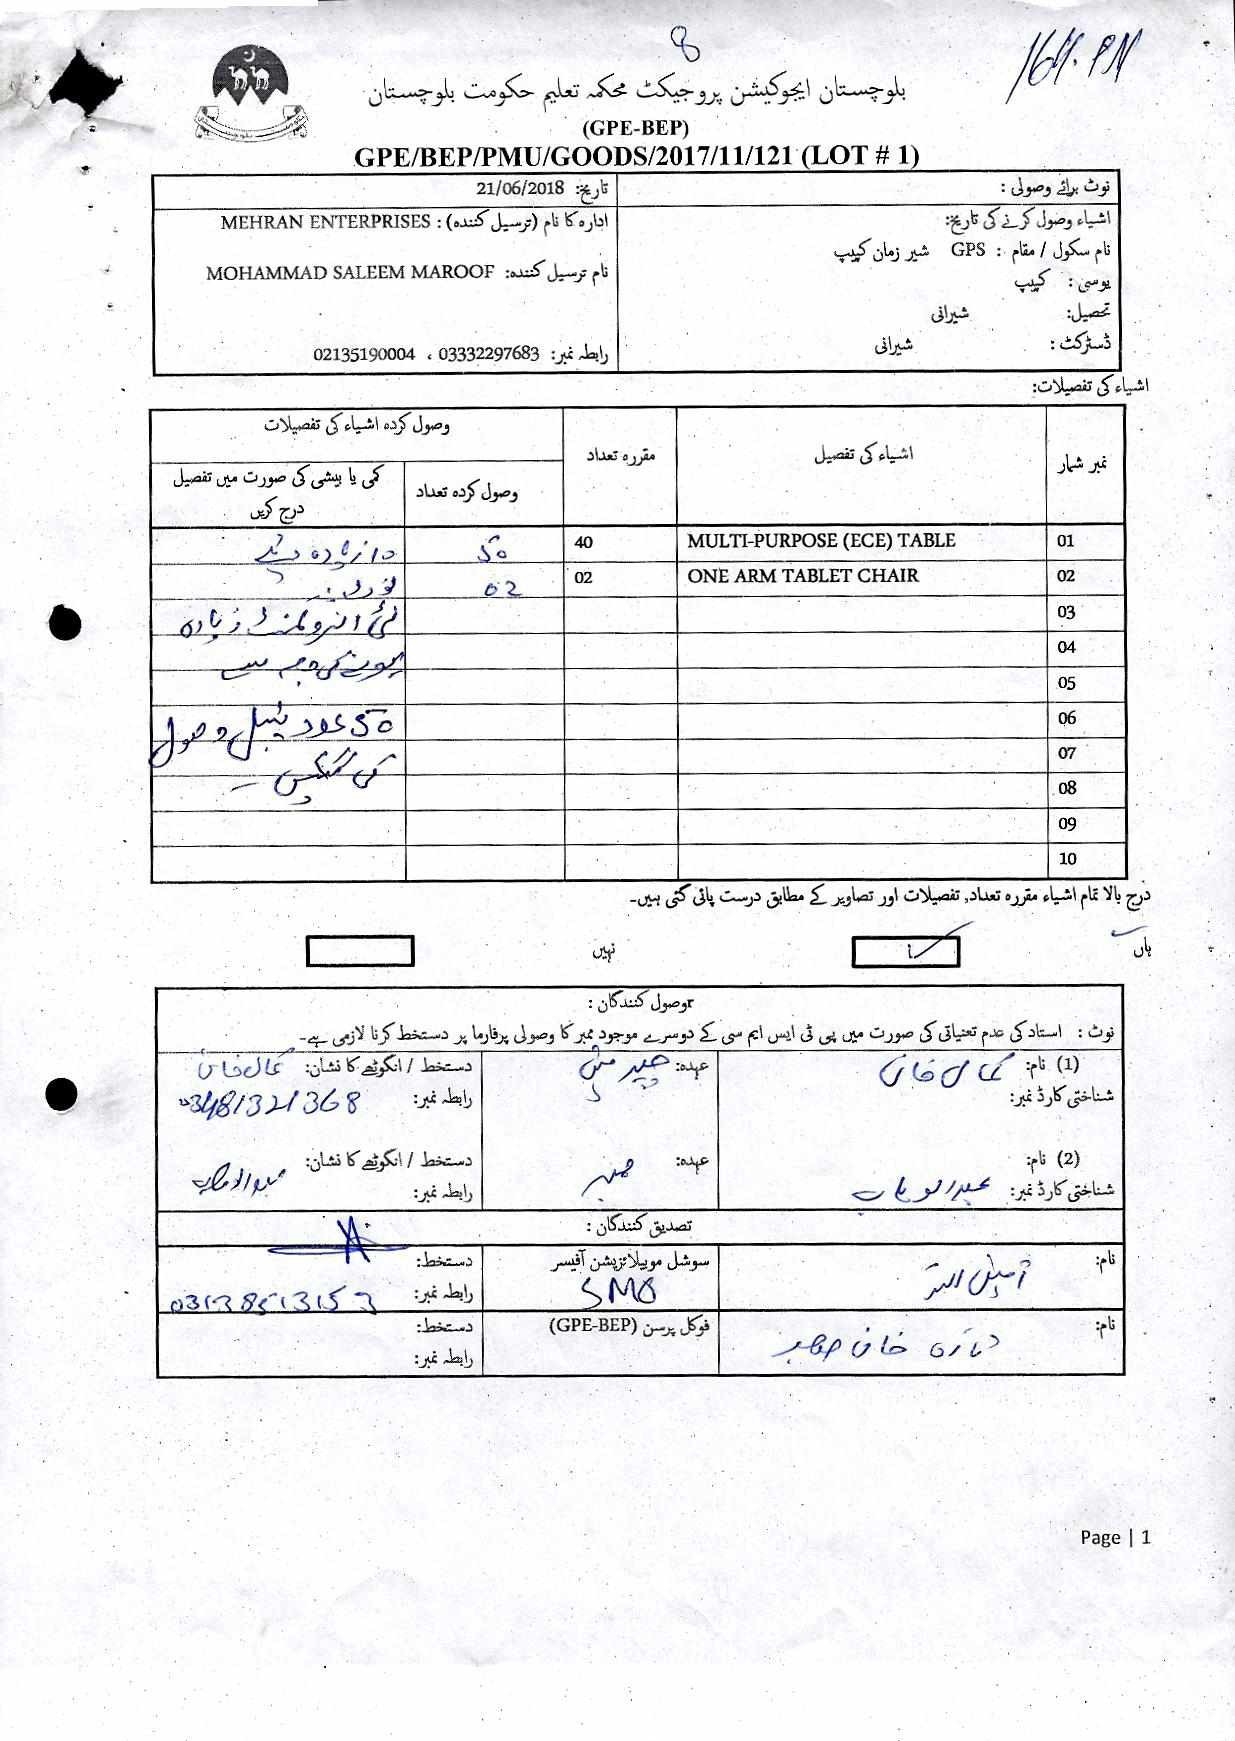 8
بلوچستان ایجوکیشن پروجیکٹ محکمہ تعلیم حکومت بلوچستان
(GPE-BEP)
GPE/BEP/PMU/GOODS/2017/11/121 (LOT # 1)
نوٹ برائے وصولی :
تاریخ: 21/06/2018
اشیاء وصول کرنے کی تاریخ:
نام سکول / مقام : GPS شیر زمان کیپ
یوسی : کیپ
تحصیل: شیرانی
ڈسٹرکٹ : شیرانی
ادارہ کا نام (ترسیل کنندہ) : MEHRAN ENTERPRISES
نام ترسیل کنندہ: MOHAMMAD SALEEM MAROOF
رابطہ نمبر: 03332297683 ، 02135190004
اشیاء کی تفصیلات:
نمبر شمار اشیاء کی تفصیل مقررہ تعداد وصول کردہ اشیاء کی تفصیلات
وصول کردہ تعداد کمی یا بیشی کی صورت میں تفصیل درج کریں
01 MULTI-PURPOSE (ECE) TABLE 40 50
02 ONE ARM TABLET CHAIR 02 02
03
04
05
06
07
08
09
10
زیادہ
ہونے کی وجہ سے
50 عدد ٹیبل وصول
کی گئیں
درج بالا تمام اشیاء مقررہ تعداد, تفصیلات اور تصاویر کے مطابق درست پائی گئی ہیں۔
ہاں نہیں
rوصول کنندگان :
نوٹ : استاد کی عدم تعیناتی کی صورت میں پی ٹی ایس ایم سی کے دوسرے موجود ممبر کا وصولی پرفارما پر دستخط کرنا لازمی ہے۔
(1) نام: کمال خان عہدہ: چیئرمین دستخط / انگوٹھے کا نشان: کمال خان
شناختی کارڈ نمبر: رابطہ نمبر: 03481321368
(2) نام: عہدہ: ممبر دستخط / انگوٹھے کا نشان: عبدالوہاب
شناختی کارڈ نمبر: عبدالوہاب رابطہ نمبر:
تصدیق کنندگان :
نام: سوشل موبیلائزیشن آفیسر دستخط:
SMO رابطہ نمبر: 03138513153
نام: خان فوکل پرسن (GPE-BEP) دستخط:
رابطہ نمبر:
Page | 1